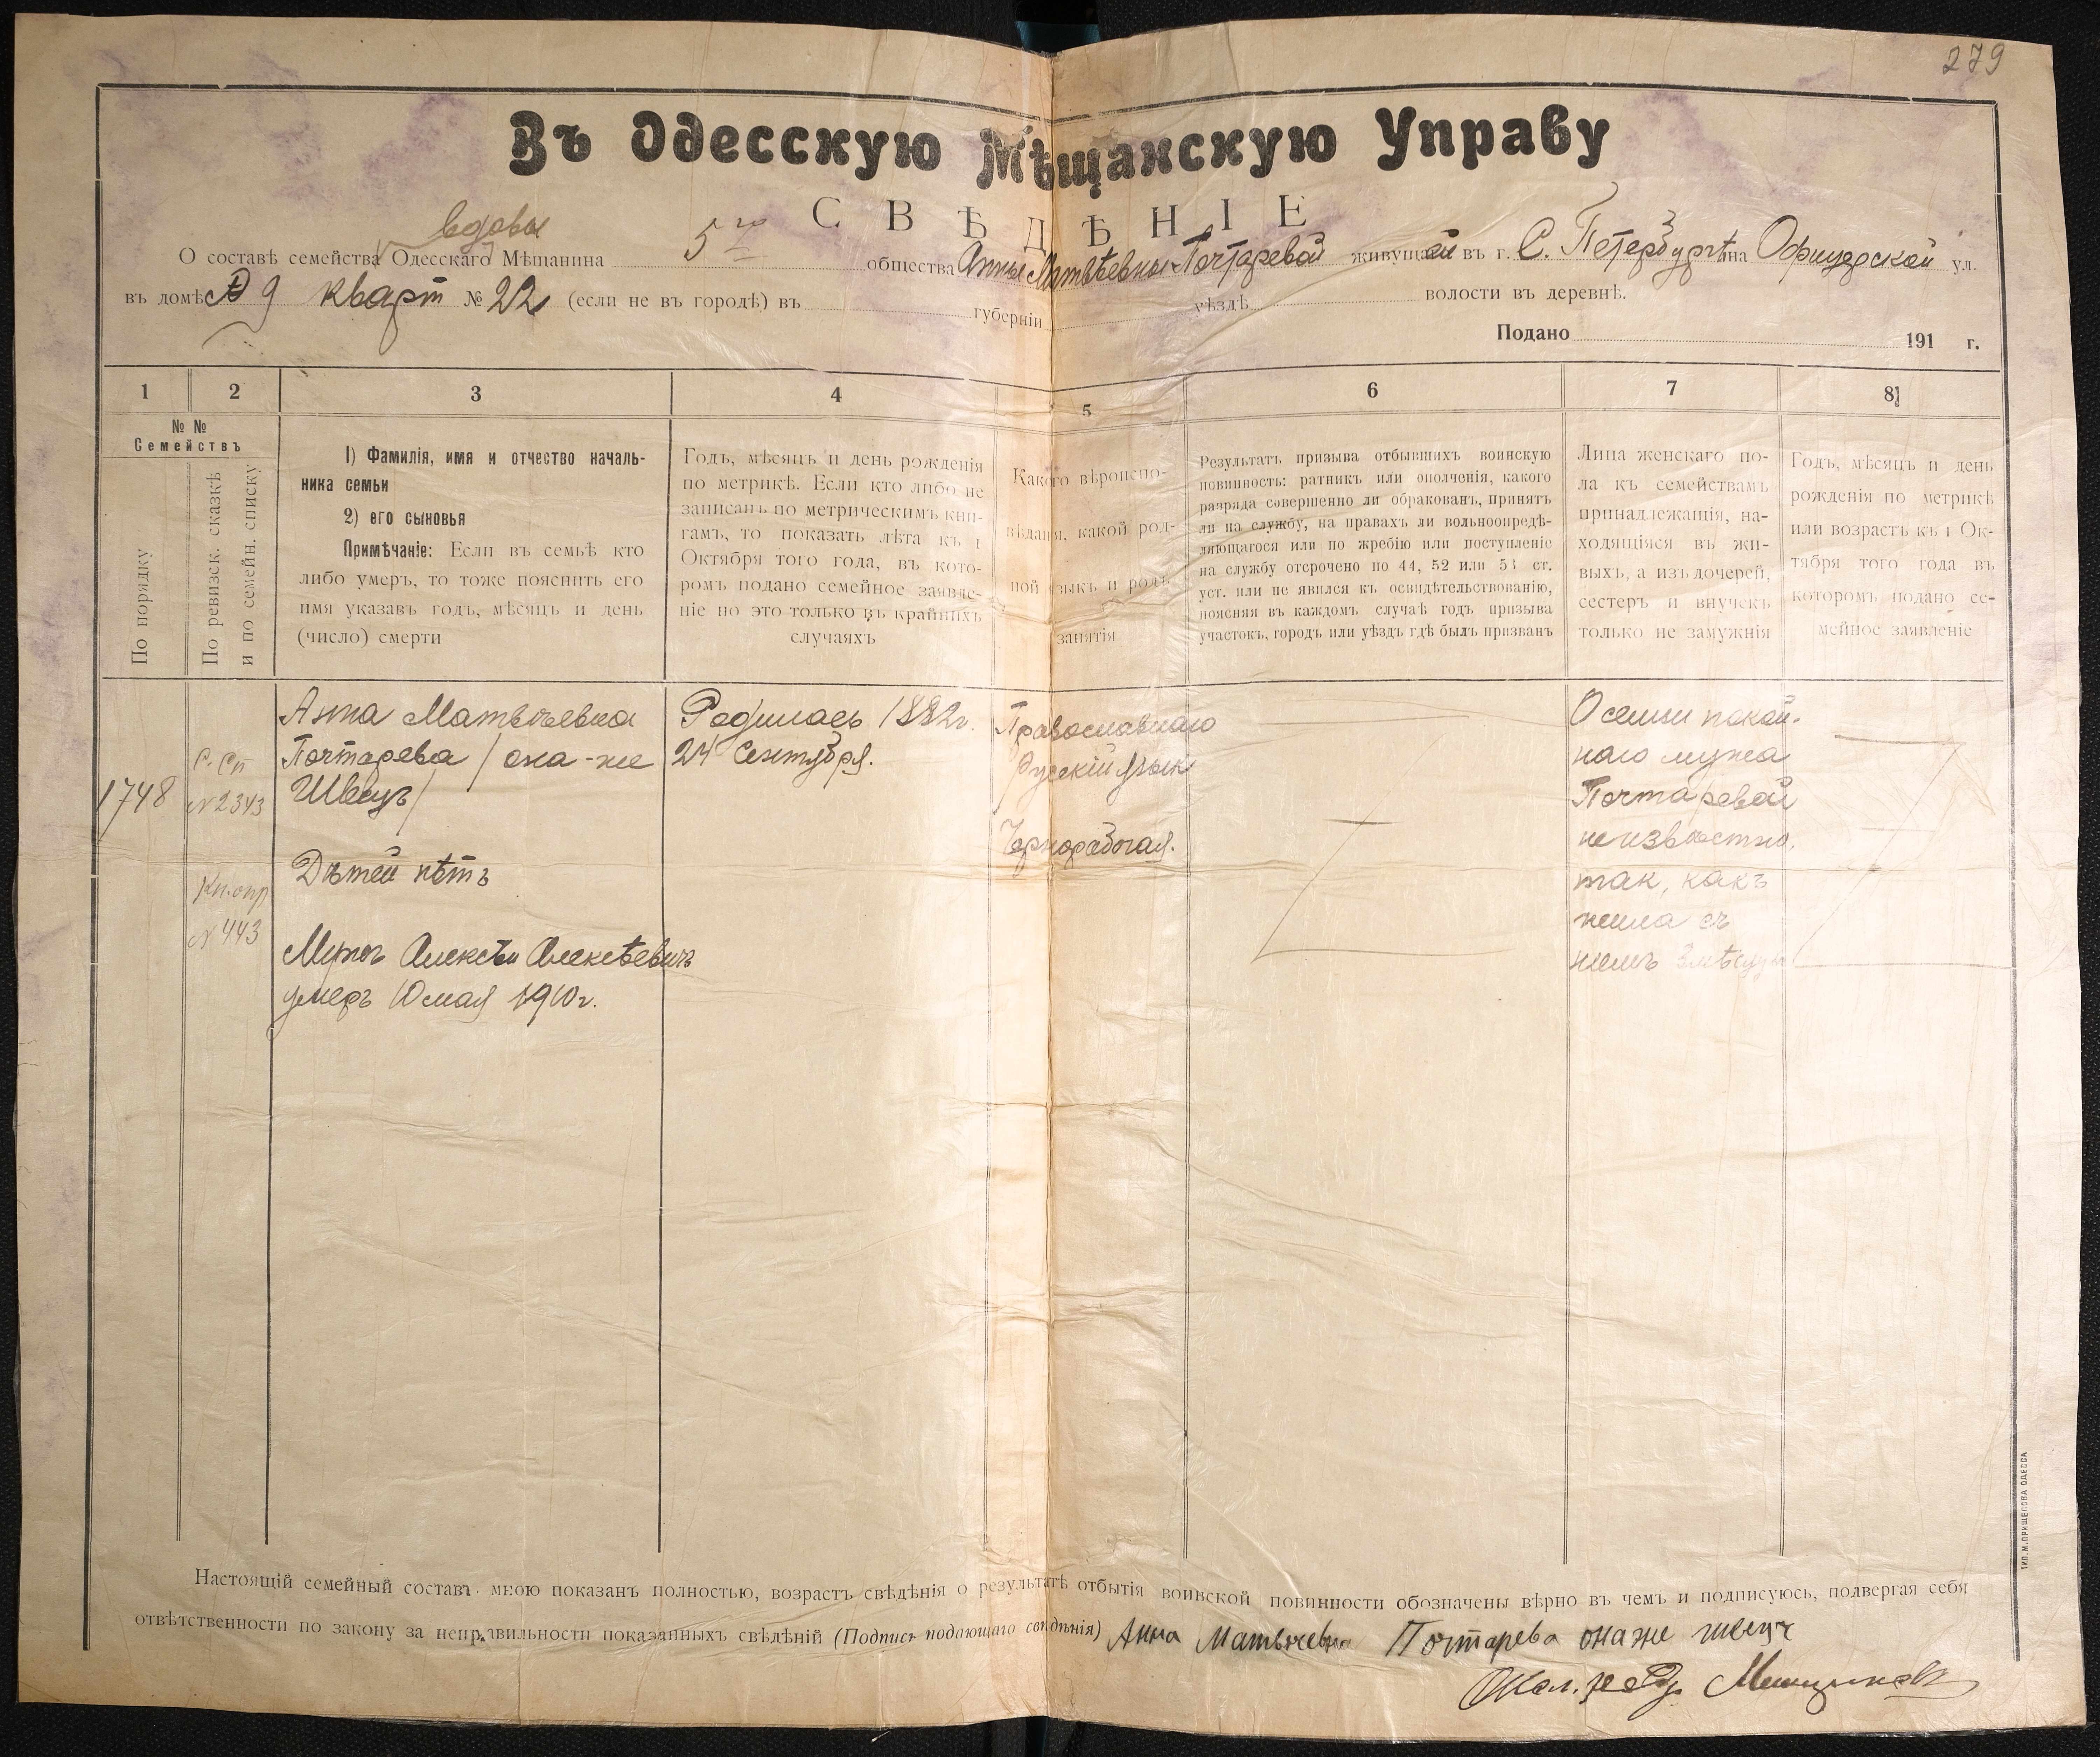 279
Въ Одесскую Мѣщанскую Управу
СВѢДѢНІЕ
вдовы
О составѣ семейства Одесскаго Мѣщанина 5го общества Анны Матвѣевны Почтаревой живущей въ г. С. Петербургѣ на Офицерской ул.
въ домѣ № 9 кварт № 22 (если не въ городѣ) въ губерніи уѣздѣ волости въ деревнѣ.
Подано 191 г.
1 2 3 4 5 6 7 8
№ №
Семействъ
По порядку
По ревизск. сказкѣ
и по семейн. списку
1) Фамилія, имя и отчество началь-
ника семьи
2) его сыновья
Примѣчаніе: Если въ семьѣ кто
либо умеръ, то тоже пояснить его
имя указавъ годъ, мѣсяцъ и день
(число) смерти
Годъ, мѣсяцъ и день рожденія
по метрикѣ. Если кто либо не
записанъ по метрическимъ кни-
гамъ, то показать лѣта къ 1
Октября того года, въ кото-
ромъ подано семейное заявле-
ніе но это только въ крайнихъ
случаяхъ
Какого вѣроиспо-
вѣданія, какой род-
ной языкъ и родъ
занятія
Результатъ призыва отбывшихъ воинскую
повинность: ратникъ или ополченія, какого
разряда совершенно ли обракованъ, принятъ
ли на службу, на правахъ ли вольноопредѣ-
ляющагося или по жребію или поступленіе
на службу отсрочено по 44, 52 или 53 ст.
уст. или не явился къ освидѣтельствованію,
поясняя въ каждомъ случаѣ годъ призыва
участокъ, городъ или уѣздъ гдѣ былъ призванъ
Лица женскаго по-
ла къ семействамъ
принадлежащія, на-
ходящіяся въ жи-
выхъ, а изъ дочерей,
сестеръ и внучекъ
только не замужнія
Годъ, мѣсяцъ и день
рожденія по метрикѣ
или возрастъ къ 1 Ок-
тября того года въ
которомъ подано се-
мейное заявленіе
1748
С. Сп
№ 2343
Кн. опр
№ 443
Анна Матвѣевна
Почтарева / она-же
Швецъ /
Дѣтей нѣтъ
Мужъ Алексѣй Алексѣевичъ
умеръ 10 мая 1910 г.
Родилась 1882 г.
24 Сентября.
Православнаго
Русскій языкъ
Чернорабочая.
О семьи покой-
наго мужа
Почтаревой
неизвѣстно,
так, какъ
жила съ
нимъ
Настоящій семейный составъ мною показанъ полностью, возрастъ свѣдѣнія о результатѣ отбытія воинской повинности обозначены вѣрно въ чемъ и подписуюсь, подвергая себя
отвѣтственности по закону за неправильности показанныхъ свѣдѣній (Подпись подающаго свѣдѣнія) Анна Матвѣевна Почтарева она же швецъ
ТИП. М. ПРИЩЕПОВА ОДЕССА